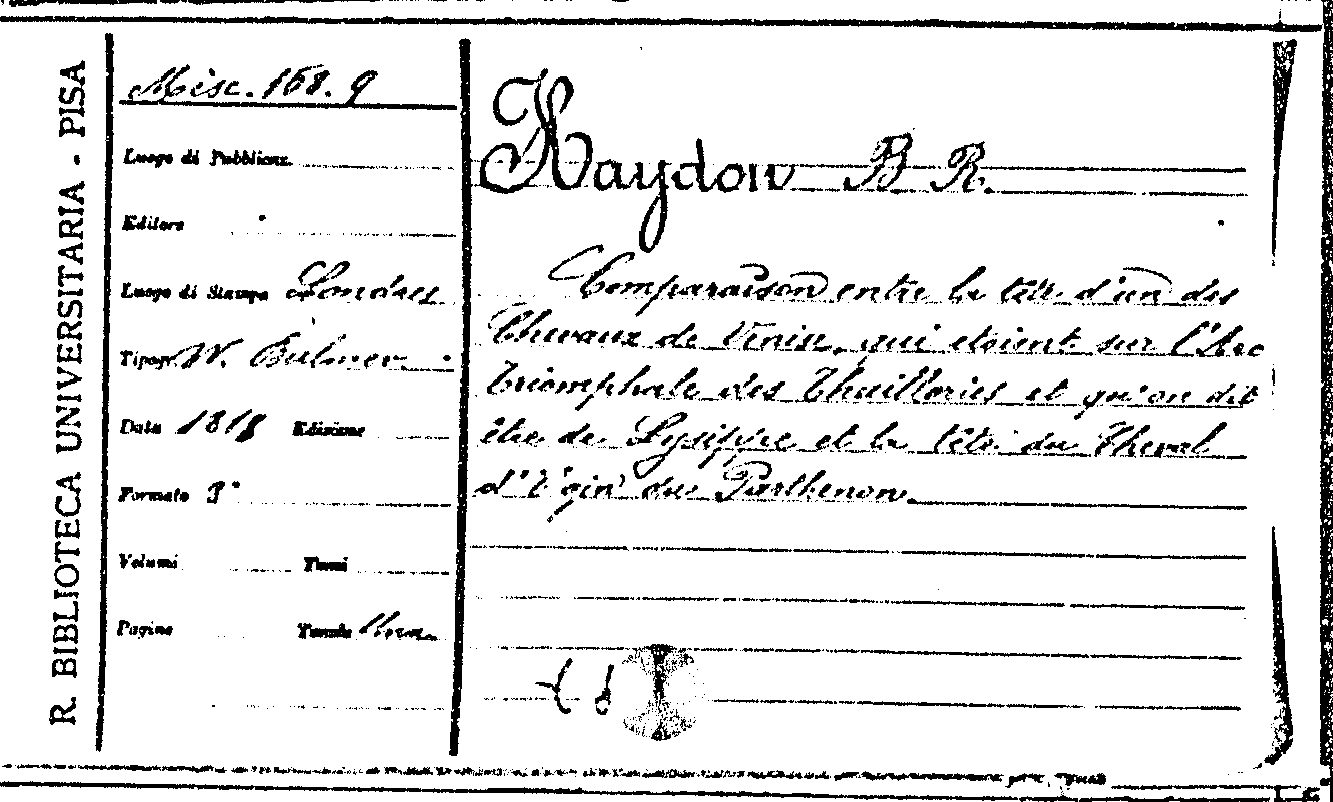 R. BIBLIOTECA UNIVERSITARIA - PISA
Misc. 168. 9
Luogo di Pubblicaz.
Editore
Luogo di Stampa Londres
Tipogr. W. Bulmer
Data 1818 Edizione
Formato 8°
Volumi Tomi
Pagine Tavole
Haydon B R.
Comparaison entre la tête d'un des
Chevaux de Venise, qui etoient sur l'Arc
Triomphale des Thuilleries et qu'on dit
être de Lysippe et la tête du Cheval
d'Elgin du Parthenon.